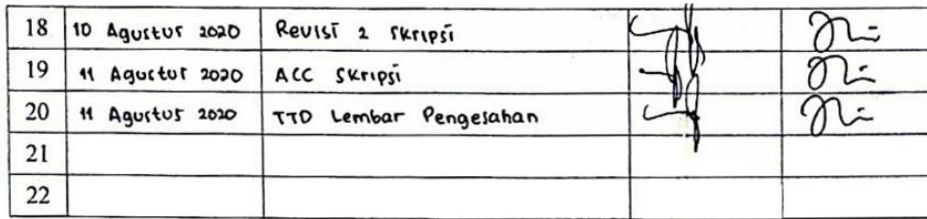 18 10 Agustus 2020 Revisi 2 Skripsi
19 11 Agustus 2020 ACC Skripsi
20 11 Agustus 2020 TTD Lembar Pengesahan
21
22